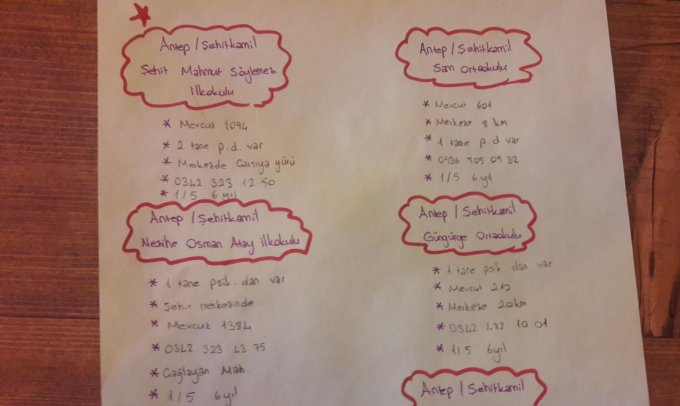 Antep / Şehitkamil
Şehit Mahmut Söylemez
İlkokulu
* Mevcut 1094
* 2 tane p.d. var
* Merkezde Çarşıya yürü
* 0342 323 12 50
* 1/5 6 yıl
Antep / Şehitkamil
Nezihe Osman Atay ilkokulu
* 1 tane psik. dan. var
* Şehir merkezinde
* Mevcut 1384
* 0342 323 43 75
* Çağlayan Mah.
* 1/5 6 yıl
Antep / Şehitkamil
Sam Ortaokulu
* Mevcut 601
* Merkeze 8 km
* 1 tane p.d var
* 0536 705 09 32
* 1/5 6 yıl
Antep / Şehitkamil
Güngürge Ortaokulu
* 1 tane psik. dan. var
* Mevcut
* Merkeze 20km
* 0342 10 01
* 1/5 6yıl
Antep / Şehitkamil